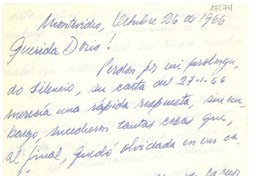 87274
Montevideo, Octubre 26 de 1966
Querida Doris!
Perdon por mi prolonga-
do silencio, su carta del 27-1-66
merecía una rápida respuesta, sin em-
bargo, sucedieron tantas cosas que,
al final, quedó olvidada en un ca-